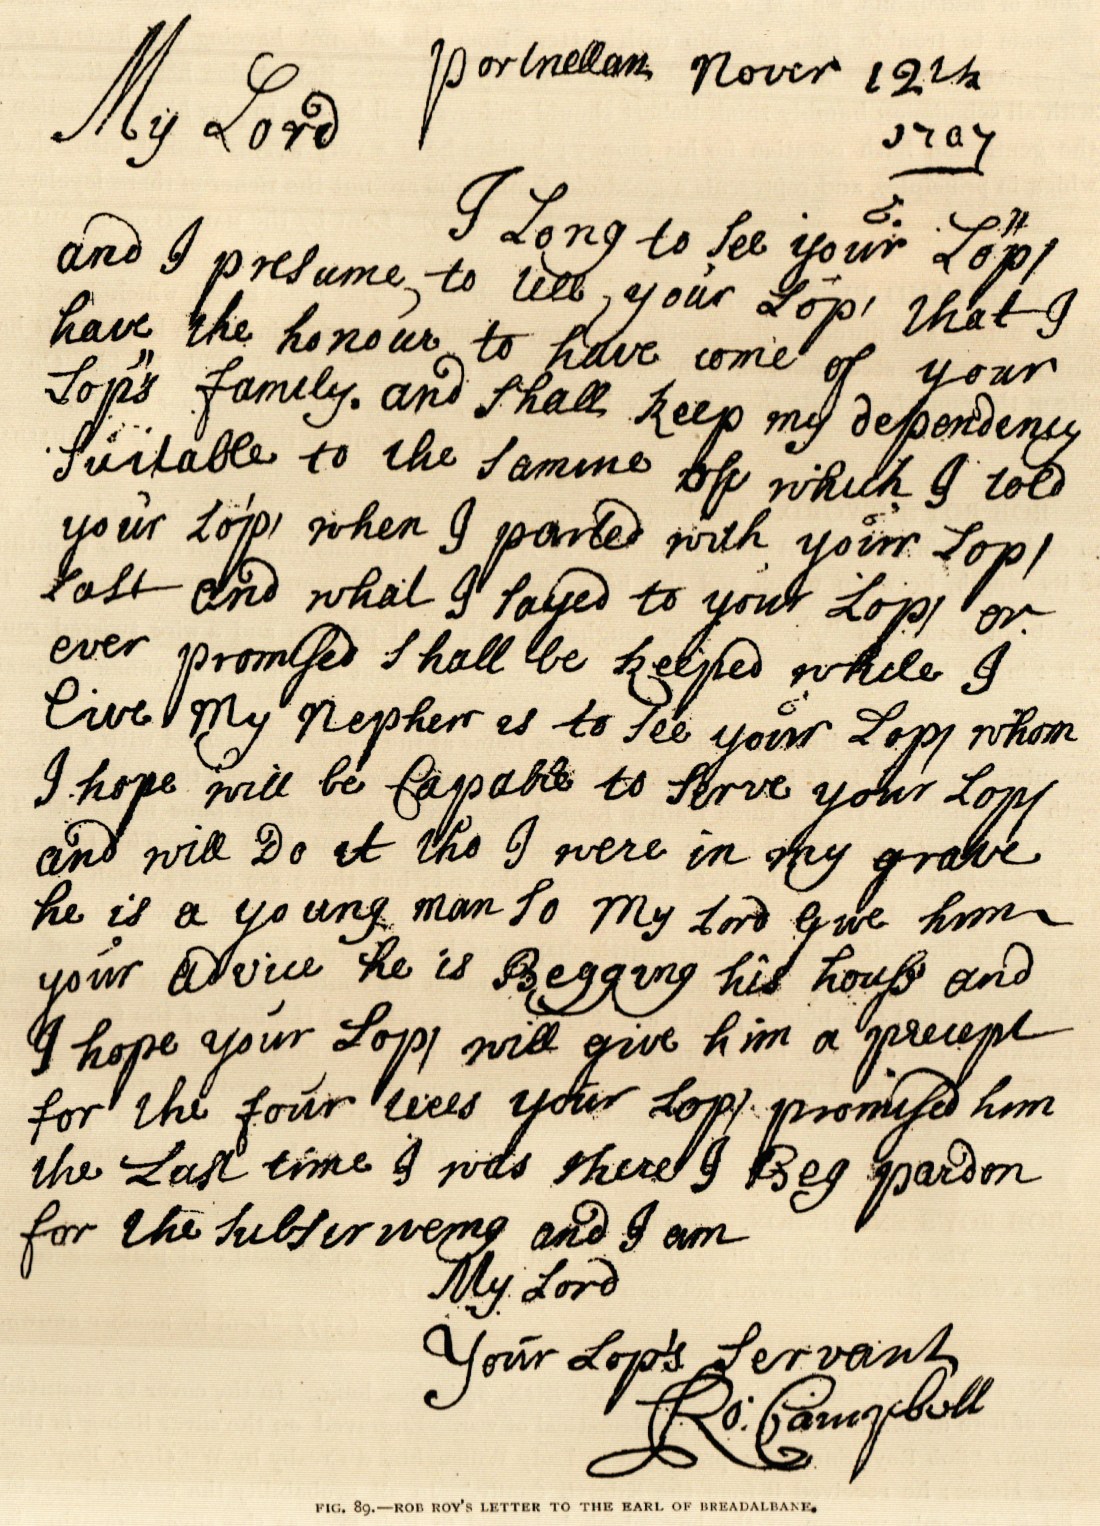 Portnellan Nover 12th
1707
My Lord
I Long to see your Lop/
and I presume to tell your Lop/ that I
have the honour to have come of your
Lop's family. and shall keep my dependency
suitable to the samine of which I told
your Lop/ when I parted with your Lop/
last and what I sayed to your Lop/ or
ever promised shall be keiped while I
Live My Nephew is to see your Lop/ whom
I hope will be Capable to serve your Lop/
and will Do it tho I were in my grave
he is a young man so My Lord give him
your advice he is Begging his house and
I hope your Lop/ will give him a precept
for the four trees your Lop/ promised him
the Last time I was there I Beg pardon
for the and I am
My Lord
Your Lop's servant
Ro: Campbell
FIG. 89.—ROB ROY'S LETTER TO THE EARL OF BREADALBANE.